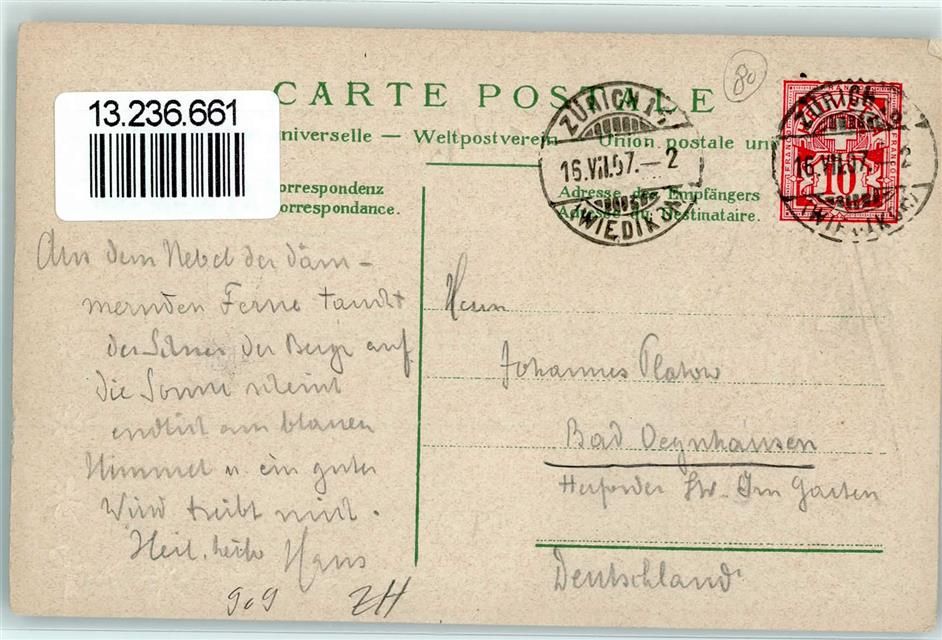 13.236.661
80
CARTE POSTALE
niverselle — Weltpostverein Union postale un
orrespondenz
orrespondance.
Adresse des Empfängers
Adresse du Destinataire.
ZÜRICH
16.VII.07.–2
(WIEDIKON)
ZÜRICH
16.VII.07.–2
(WIEDIKON)
10
Aus dem Nebel der däm-
mernden Ferne taucht
der Schnee der Berge auf
die Sonne scheint
endlich am blauen
Himmel u. ein guter
Wind treibt mich.
Heil. Hans
909 ZH
Herrn
Johannes Platow
Bad Oeynhausen
Herforder Str. Im Garten
Deutschland